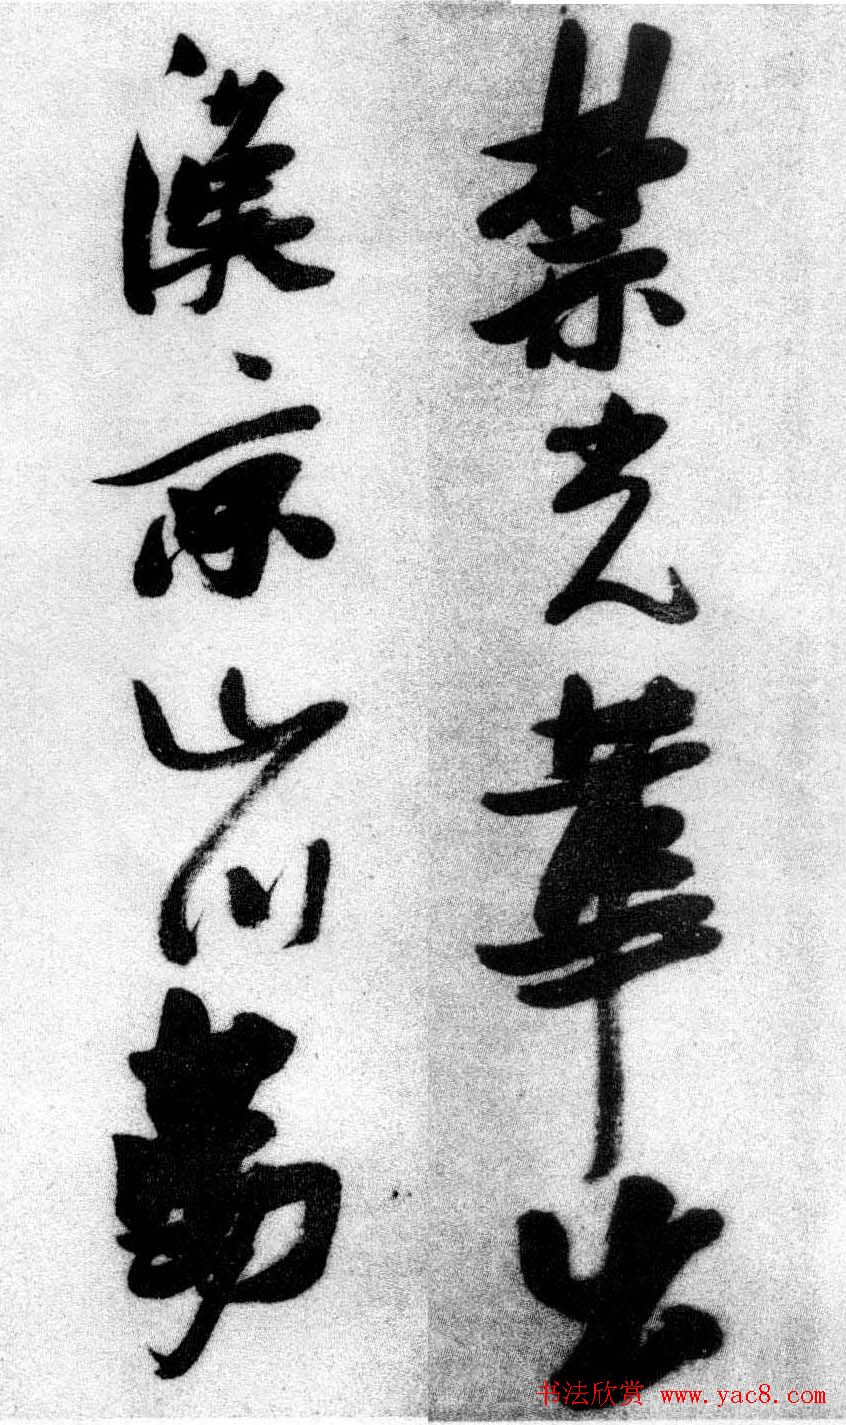 禁光華出
漢京山川
书法欣赏 www.yac8.com